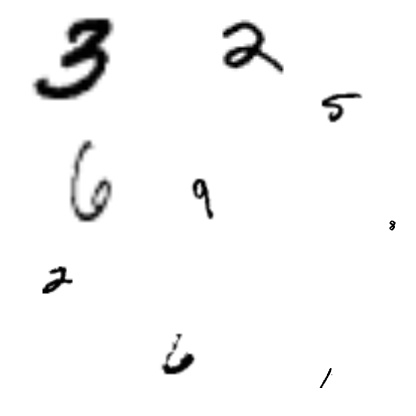 3 2
5
6 9
8
2
6
1